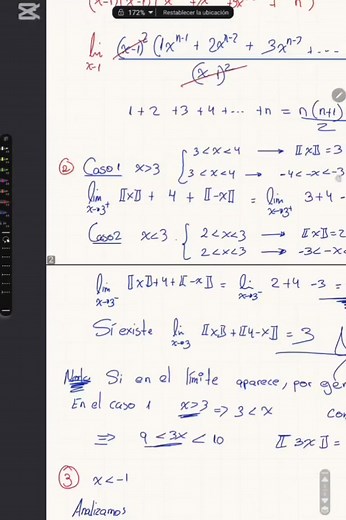 172%
Restablecer la ubicación
lim x→1 (x-1)² (1xⁿ⁻¹ + 2xⁿ⁻² + 3xⁿ⁻³ + ....
(x-1)²
1 + 2 + 3 + 4 + .... + n = n(n+1)/2
② Caso 1 x>3 { 3<x<4 → ⟦x⟧=3
3<x<4 → -4<-x<-3
lim x→3⁺ ⟦x⟧ + 4 + ⟦-x⟧ = lim x→3⁺ 3+4-
Caso 2 x<3 { 2<x<3 → ⟦x⟧=2
2<x<3 → -3<-x<-
2
lim x→3⁻ ⟦x⟧+4+⟦-x⟧ = lim x→3⁻ 2+4-3 =
Sí existe lim x→3 ⟦x⟧+⟦4-x⟧ = 3
Nota: Si en el límite aparece, por ejem
En el caso 1 x>3 ⇒ 3<x con
⇒ 9<3x<10 ⟦3x⟧ =
③ x<-1
Analizamos